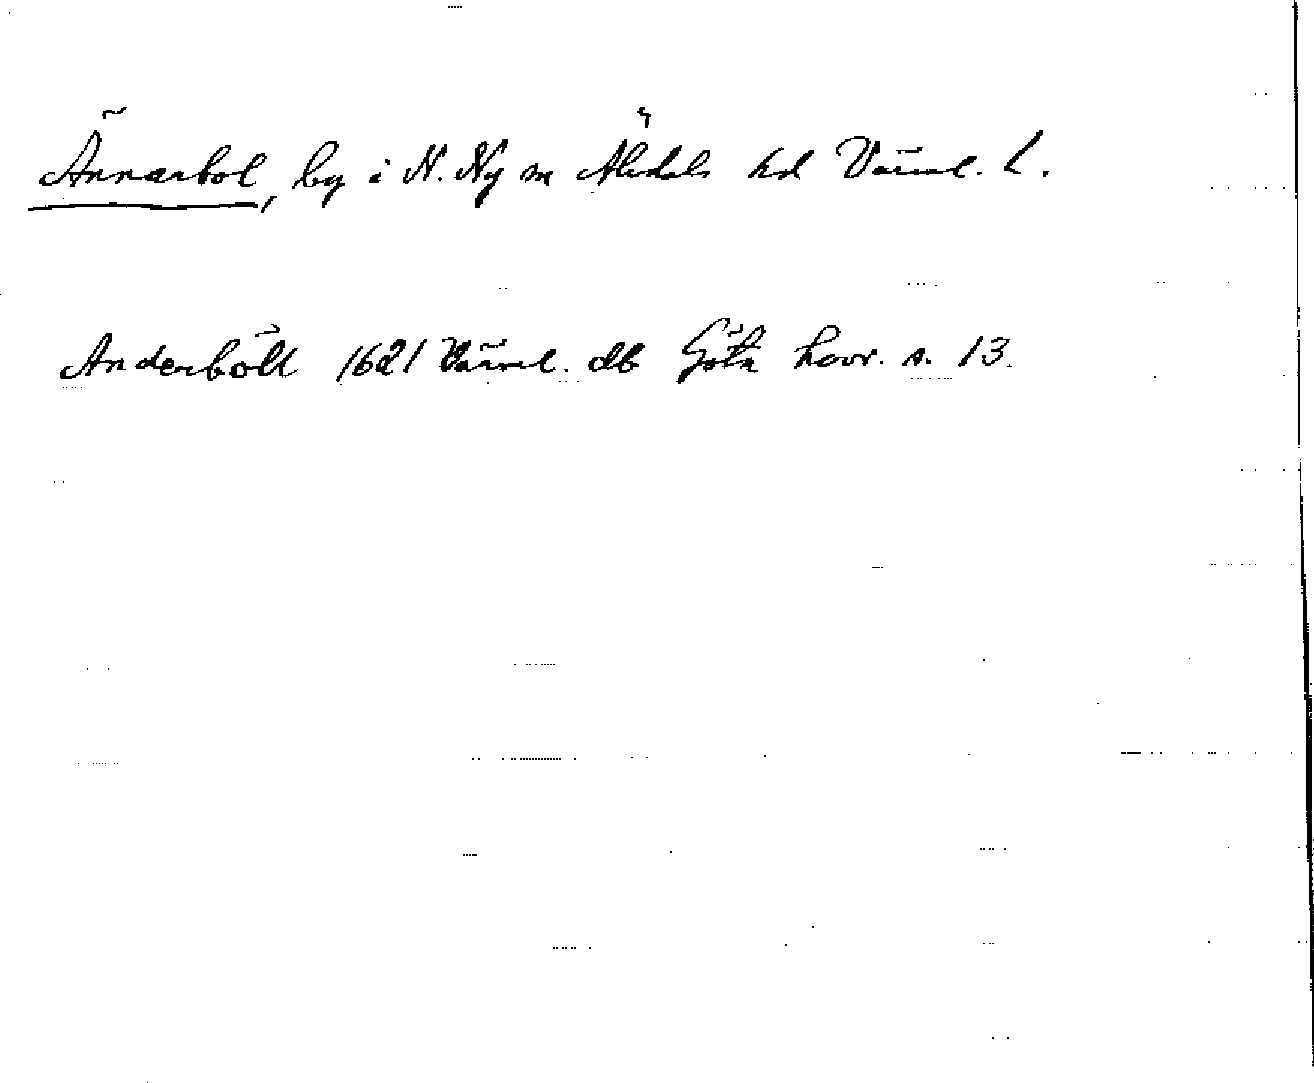 Ännarbol, by i N. Ny sn Älvdals hd Värml. L.
Anderböll 1621 Värml. db Göta hovr. s. 13.